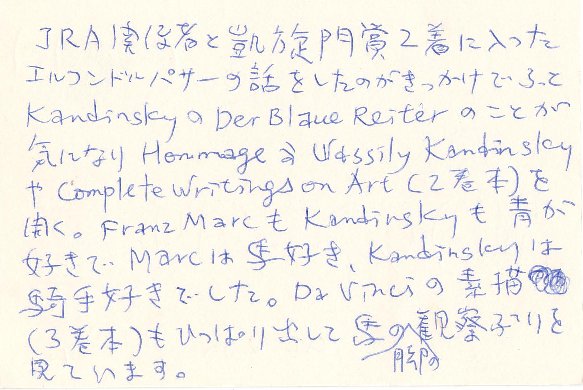 JRA関係者と凱旋門賞2着に入った
エルコンドルパサーの話をしたのがきっかけでふと
KandinskyのDer Blaue Reiterのことが
気になりHommage à Wassily Kandinsky
やComplete Writings on Art(2巻本)を
開く。Franz MarcもKandinskyも青が
好きでMarcは馬好き、Kandinskyは
騎手好きでした。Da Vinciの素描
(3巻本)もひっぱり出して馬の脚の観察ぶりを
見ています。